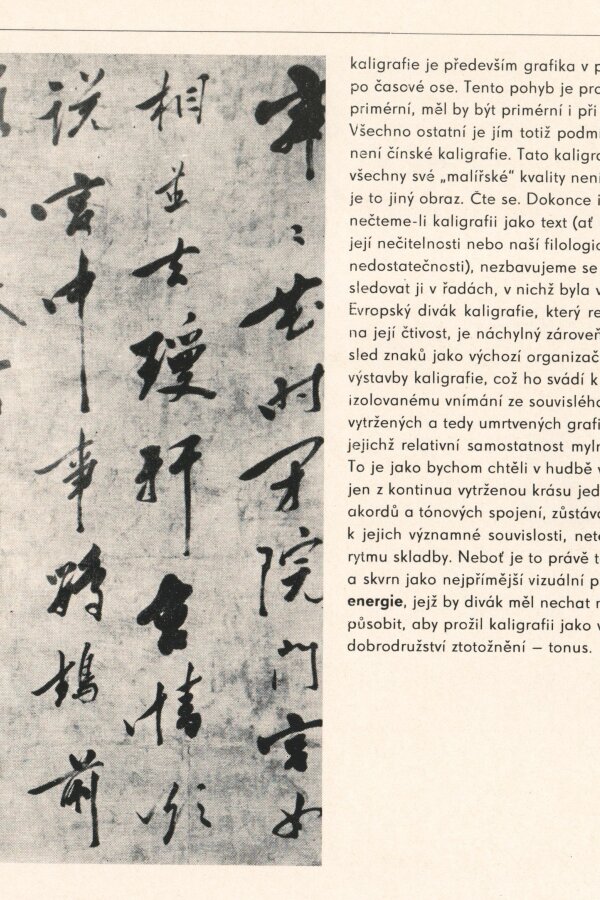 寂〻花时闭院门宫女
相並立瓊軒含情欲
说宫中事鹦鹉前
kaligrafie je především grafika v p
po časové ose. Tento pohyb je pro
primérní, měl by být primérní i při
Všechno ostatní je jím totiž podm
není čínské kaligrafie. Tato kaligra
všechny své „malířské“ kvality není
je to jiný obraz. Čte se. Dokonce i
nečteme-li kaligrafii jako text (ať
její nečitelnosti nebo naší filologic
nedostatečnosti), nezbavujeme se
sledovat ji v řadách, v nichž byla v
Evropský divák kaligrafie, který re
na její čtivost, je náchylný zároveň
sled znaků jako výchozí organizač
výstavby kaligrafie, což ho svádí k
izolovanému vnímání ze souvislého
vytržených a tedy umrtvených grafi
jejichž relativní samostatnost myln
To je jako bychom chtěli v hudbě v
jen z kontinua vytrženou krásu jed
akordů a tónových spojení, zůstáva
k jejich významné souvislosti, nete
rytmu skladby. Neboť je to právě t
a skvrn jako nejpřímější vizuální p
energie, jejž by divák měl nechat n
působit, aby prožil kaligrafii jako v
dobrodružství ztotožnění – tonus.